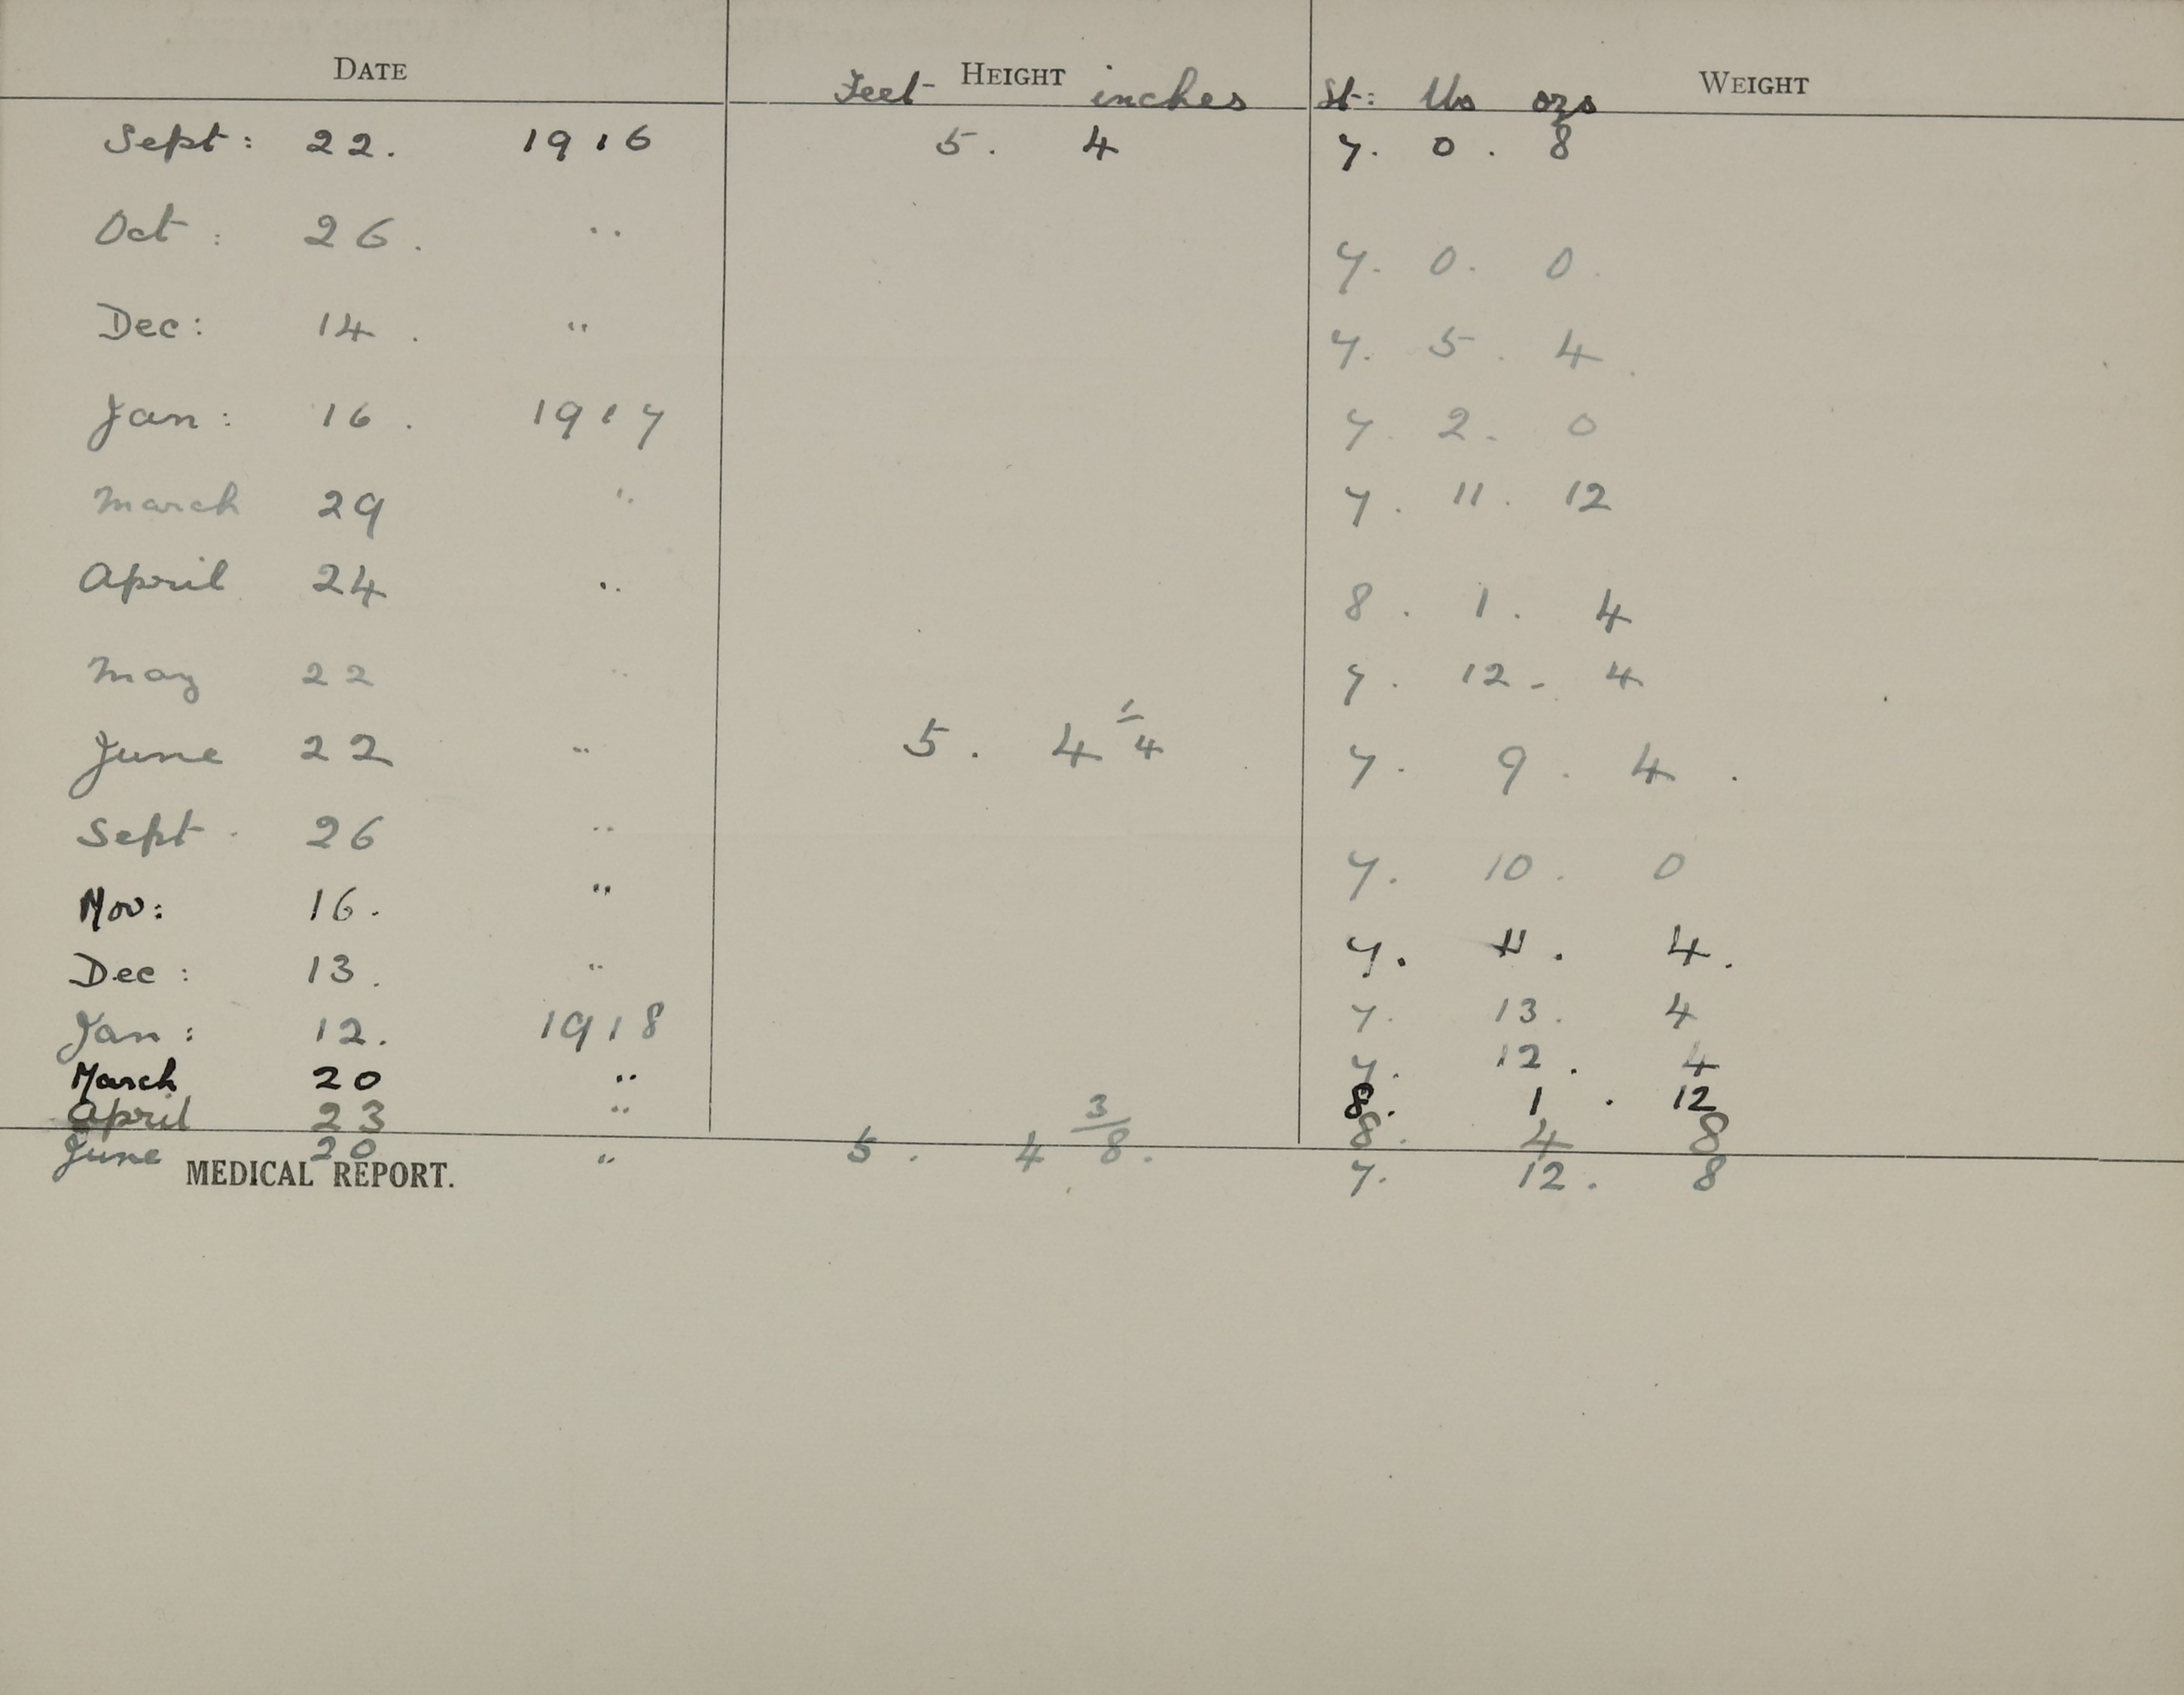 DATE HEIGHT WEIGHT
Feet inches St: lbs ozs
Sept: 22. 1916 5. 4 7. 0. 8
Oct: 26. " 7. 0. 0.
Dec: 14. " 7. 5. 4.
Jan: 16. 1917 7. 2. 0
March 29 " 7. 11. 12
April 24 " 8. 1. 4
May 22 " 7. 12. 4
June 22 " 5. 4 1/4 7. 9. 4.
Sept. 26 " 7. 10. 0
Nov: 16. " 7. 11. 4.
Dec: 13. " 7. 13. 4
Jan: 12. 1918 7. 12. 4
March 20 " 8. 1. 12
April 23 " 8. 4 8
June 20 " 5. 4 3/8. 7. 12. 8
MEDICAL REPORT.